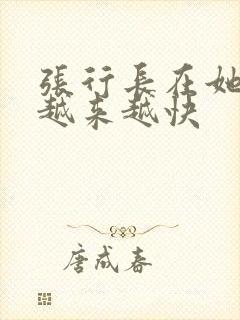 張行長在她
越来越快
唐成春